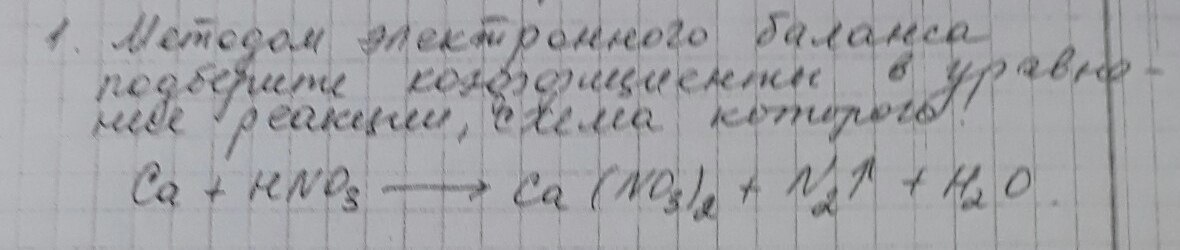 1. Методом электронного баланса
подберите коэффициенты в уравне-
нии реакции, схема которого:
Ca + HNO₃ ⟶ Ca (NO₃)₂ + N₂↑ + H₂O.